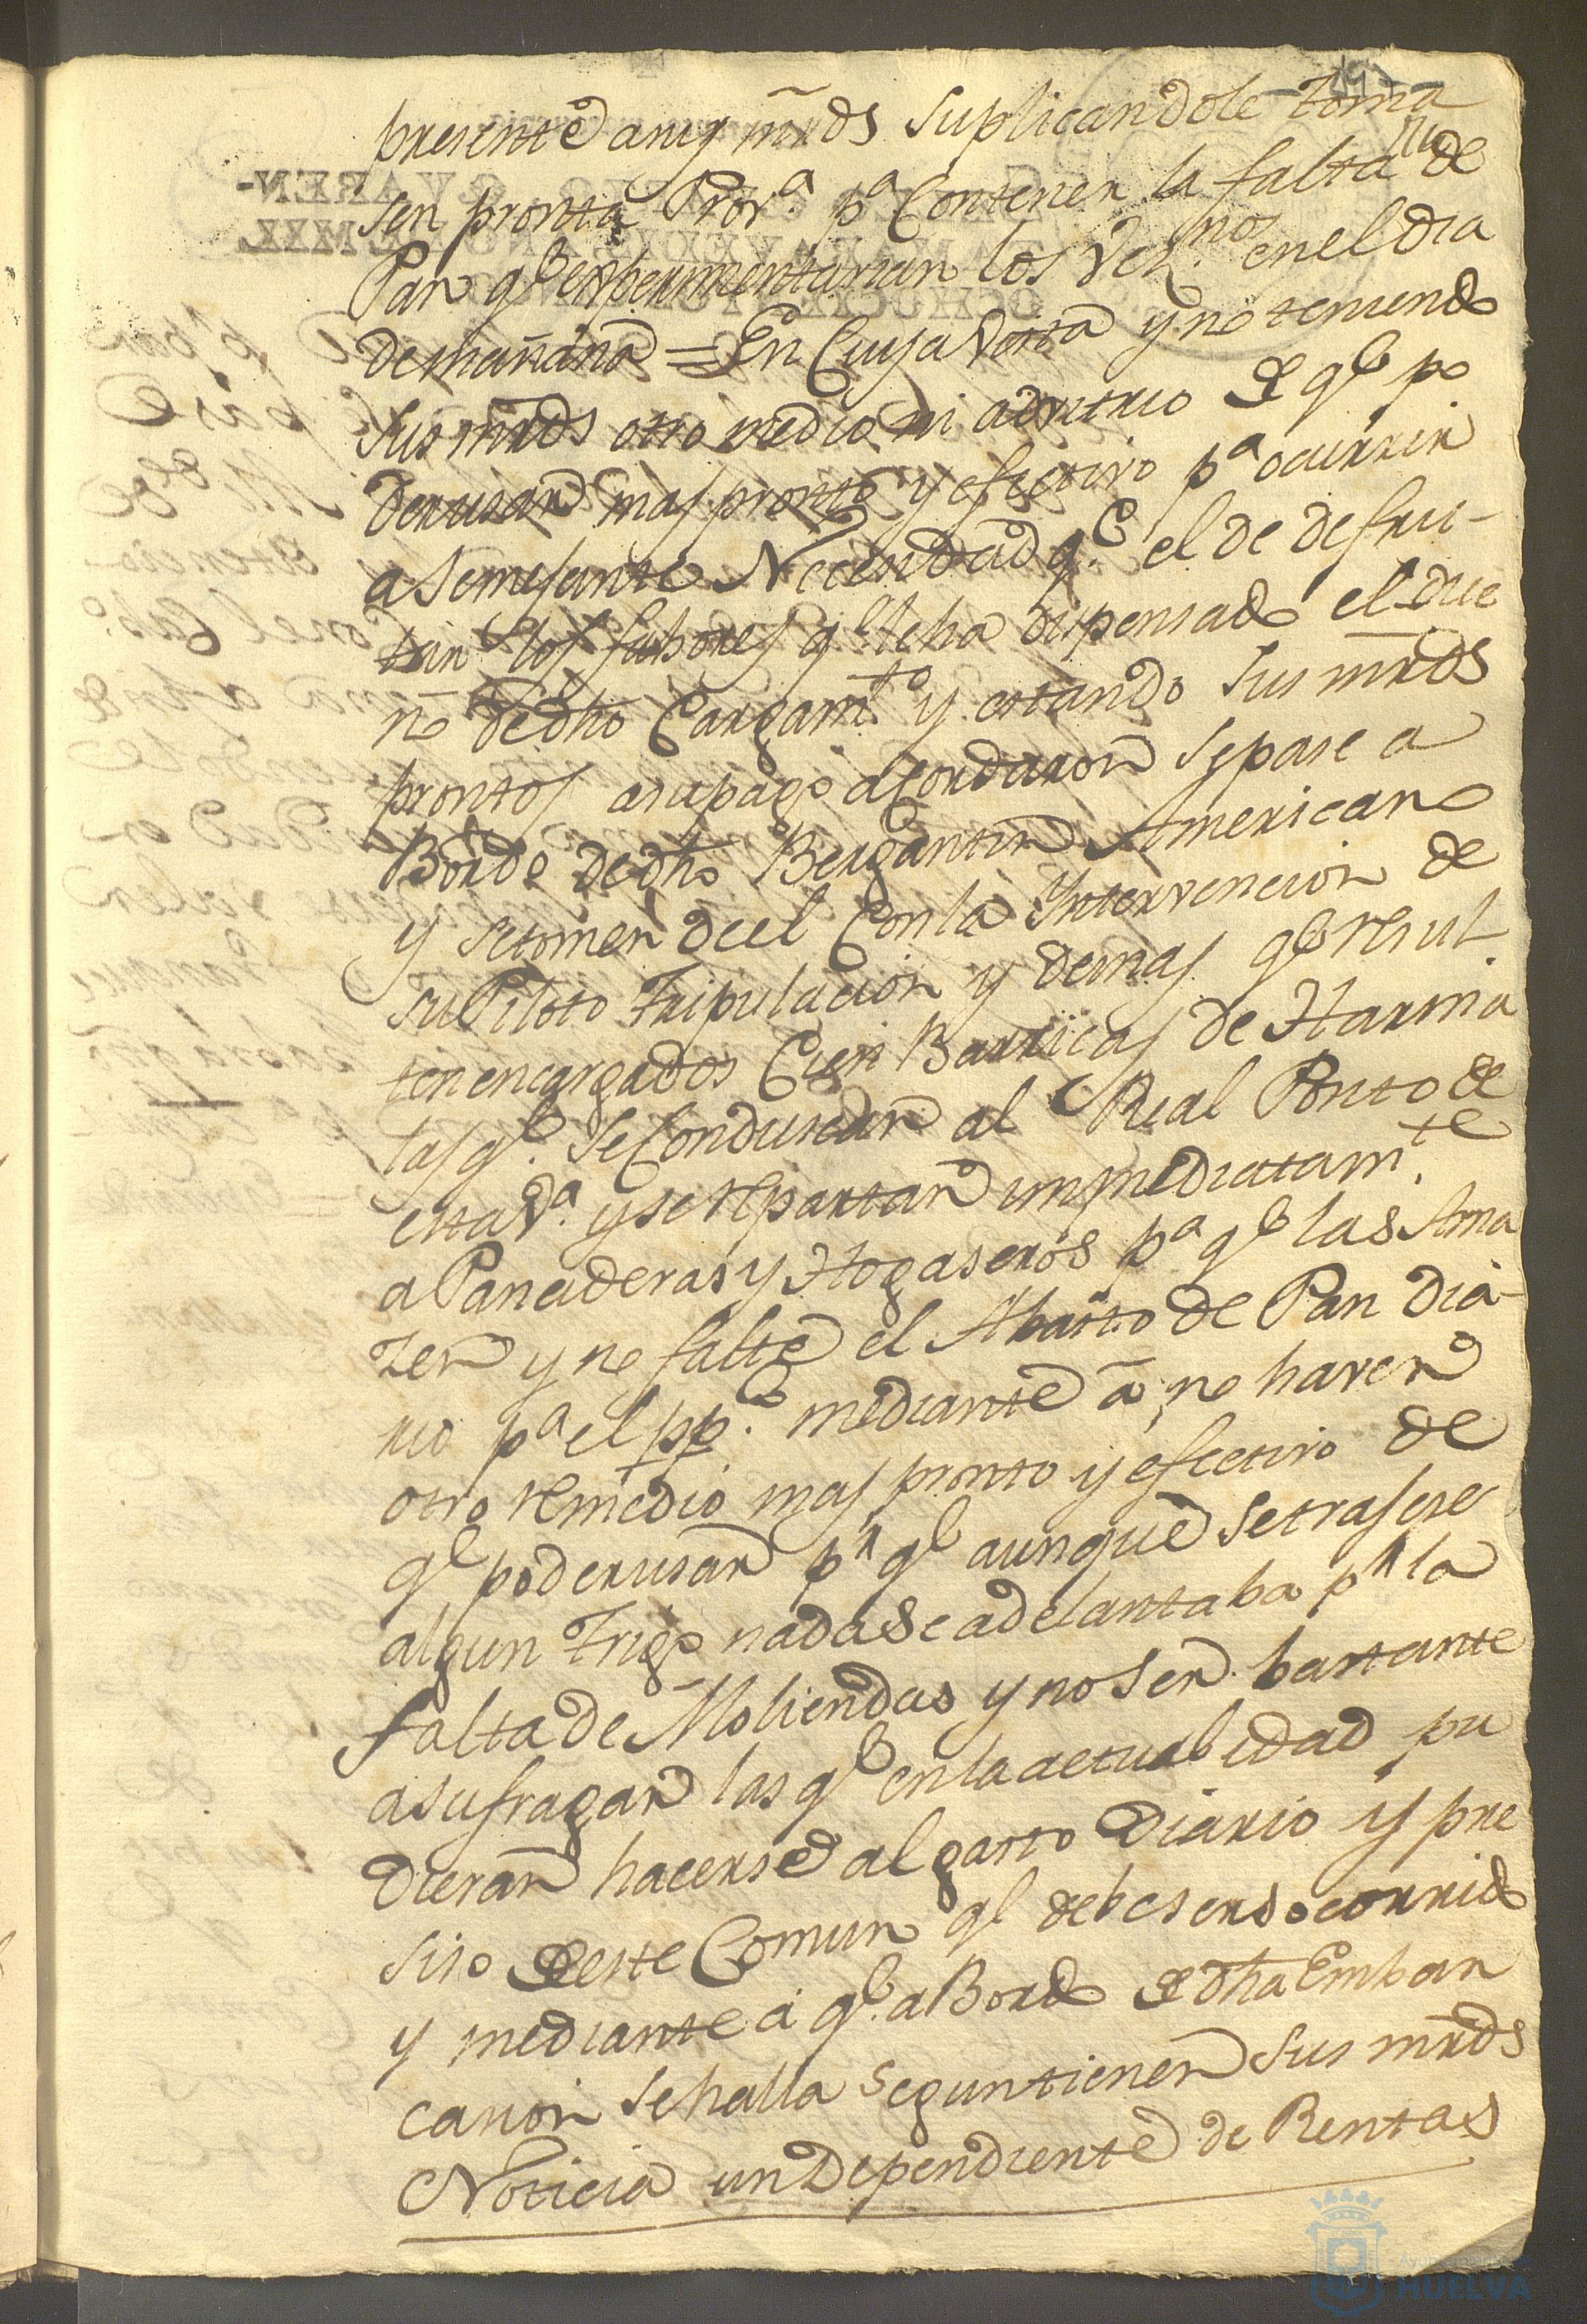 presente a nrŝ mrds suplicandole toma
sen pronta Prov.ª pª Contener la falta de
Pan qe experimentarian los Vez.nos en el dia
de mañana = En Cuya Vista y no teniendo
sus mrds otro medio ni advitrio de qe po
der usar mas pronto y efectivo pª ocurrir
a Semejante Necesidad q.e el de disfru-
tar los fabores qe le ha dispensado el Due
ño de dho Cargam.to y estando sus mrds
prontos a su pago acordaron se pase a
Bordo de dho Bergantin Americano
y se tomen de el Con la Yntervencion de
su Piloto tripulacion y demas qe resul
ten encargados Cien Barricas de Harina
las q.e se Conduscan al Real Posito de
esta V.ª y se repartan immediatam.te
a Panaderas y Hogaseros pª qe las Ama
zen y no falte el Abasto de Pan Dia-
rio pª el pp.co mediante â no haver
otro remedio mas pronto y efectivo de
qe poder usar pr qe aunque se trasese
algun trigo nada se adelantaba pr la
falta de Moliendas y no Ser bastante
a sufragar las qe en la actualidad pu
dieran hacerse al gasto Diario y pre
siso de este Comun qe debe ser socorrido
y mediante á qe a Bordo de dha Embar
cacion se halla segun tienen sus mrds
Noticia un Dependiente de Rentas
Ayuntamiento de
HUELVA